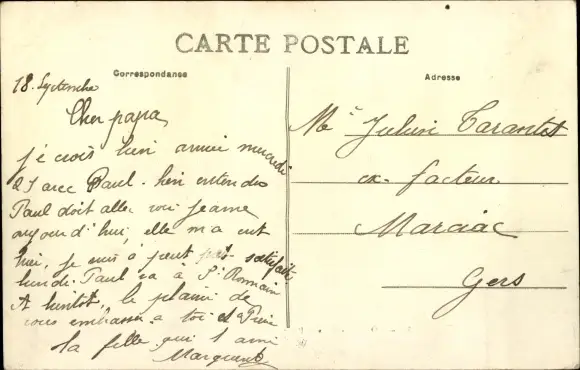 CARTE POSTALE
Correspondance
Adresse
18. Septembre
Cher papa
je crois bien arriver mercredi
21 avec Paul. bien entendu
Paul doit aller voir Jeanne
aujourd'hui, elle m'a écrit
hier, je suis à peut satisfait
lundi Paul va à St Romain
A bientôt, le plaisir de
vous embrasser a toi et
ta fille qui t'aime
Marguerite
Mr Julien
ex-facteur
Marciac
Gers